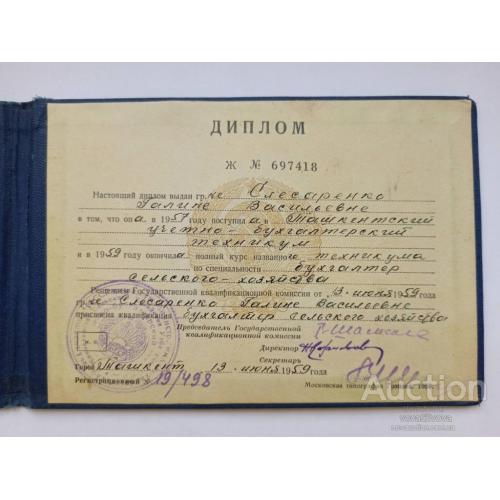 ДИПЛОМ
Ж № 697418
Настоящий диплом выдан гр.ке Слесаренко
Галине Васильевне
в том, что она в 1957 году поступила в Ташкентский
учетно-бухгалтерский
техникум
и в 1959 году окончила полный курс названного техникума
по специальности бухгалтер
сельского-хозяйства
Решением Государственной квалификационной комиссии от 9-июня 1959 года
гр.ке Слесаренко Галине Васильевне
присвоена квалификация бухгалтер сельского хозяйства
Председатель Государственной
квалификационной комиссии
Директор
Секретарь
Город Ташкент 19 июня 1959 года
Регистрационный № 19/498
Московская типография Гознака, 1956.
Auction
vovazivova